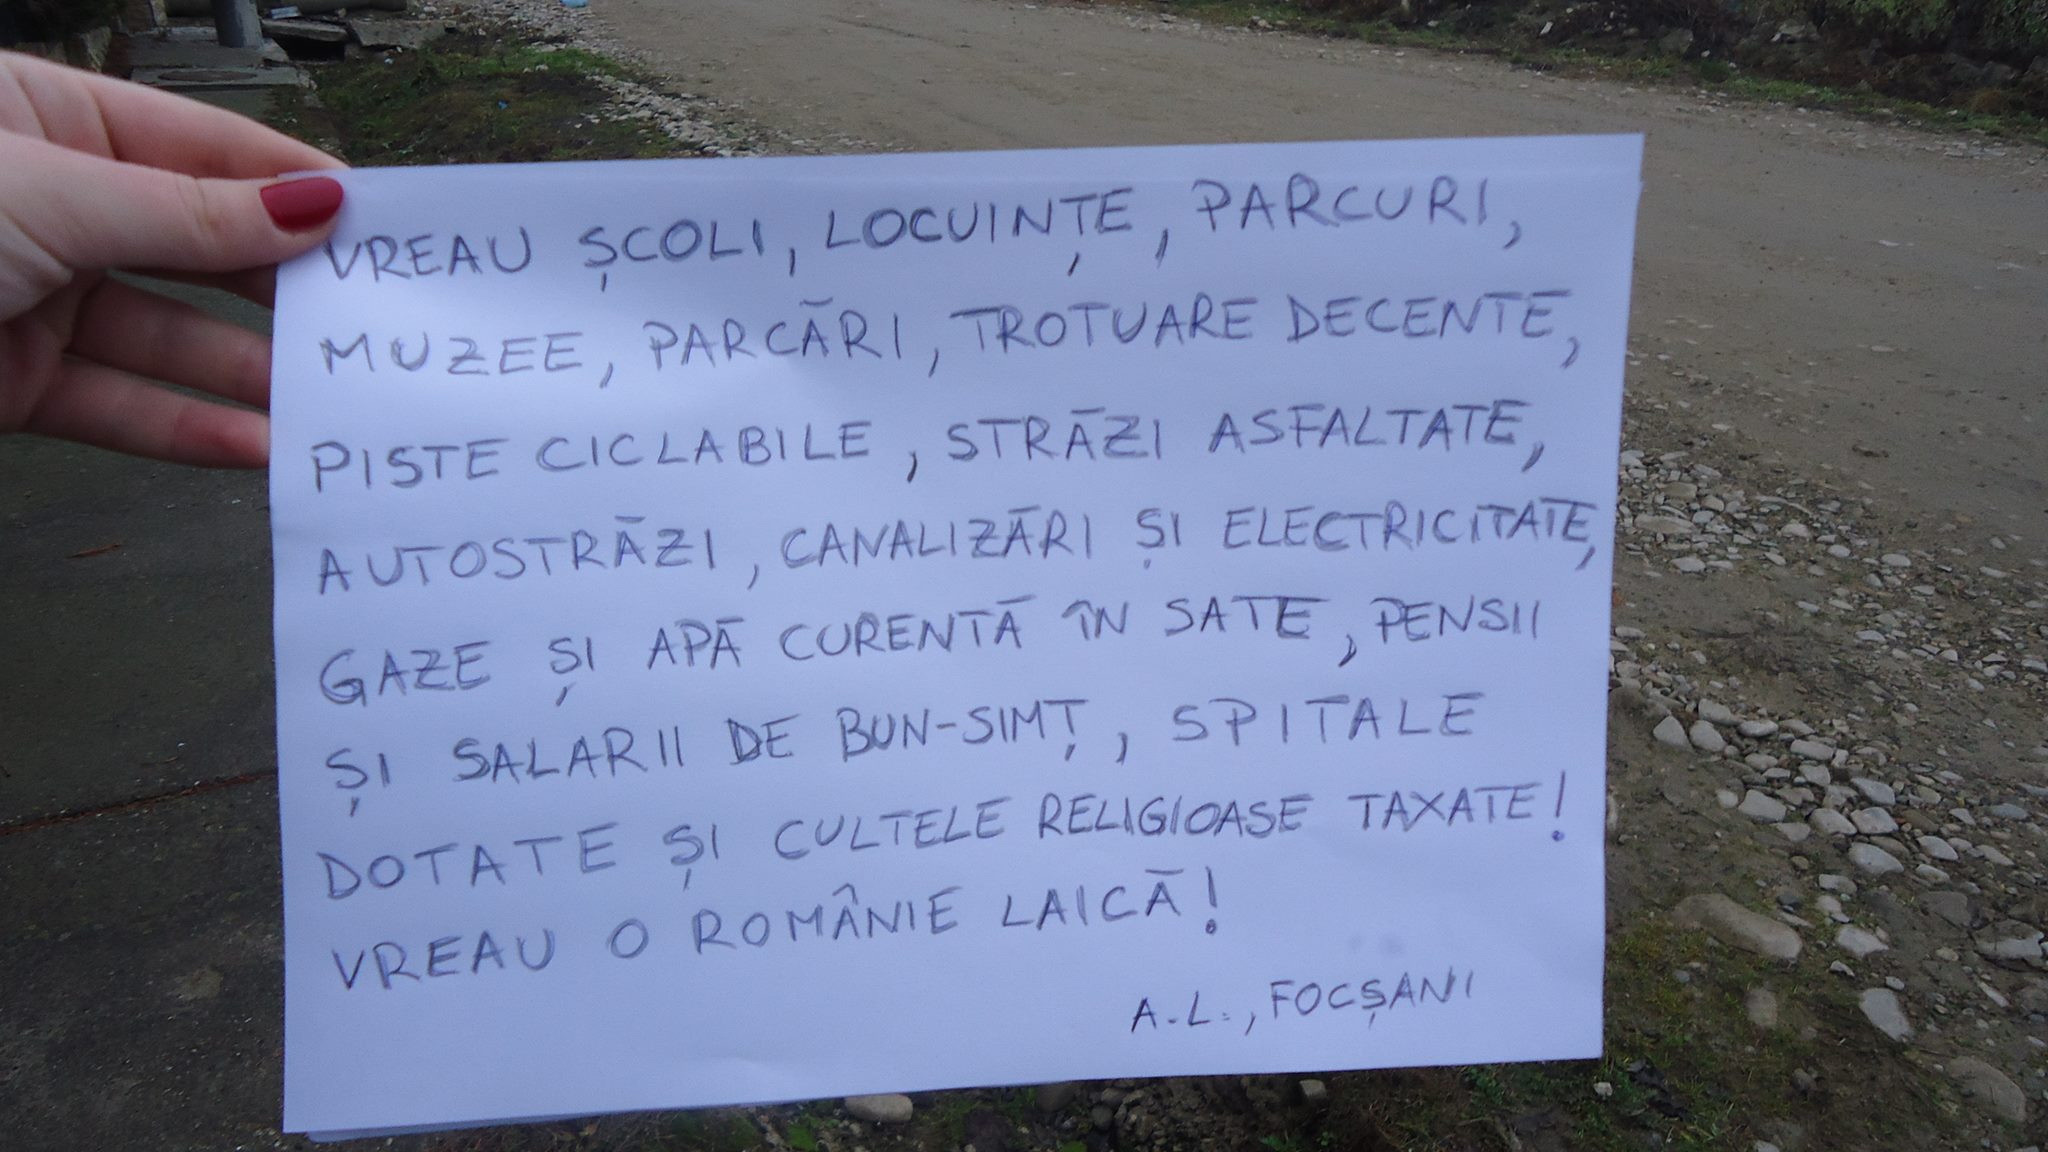 VREAU ȘCOLI, LOCUINȚE, PARCURI,
MUZEE, PARCĂRI, TROTUARE DECENTE,
PISTE CICLABILE, STRĂZI ASFALTATE,
AUTOSTRĂZI, CANALIZĂRI ȘI ELECTRICITATE,
GAZE ȘI APĂ CURENTĂ ÎN SATE, PENSII
ȘI SALARII DE BUN-SIMȚ, SPITALE
DOTATE ȘI CULTELE RELIGIOASE TAXATE!
VREAU O ROMÂNIE LAICĂ!
A.L., FOCȘANI